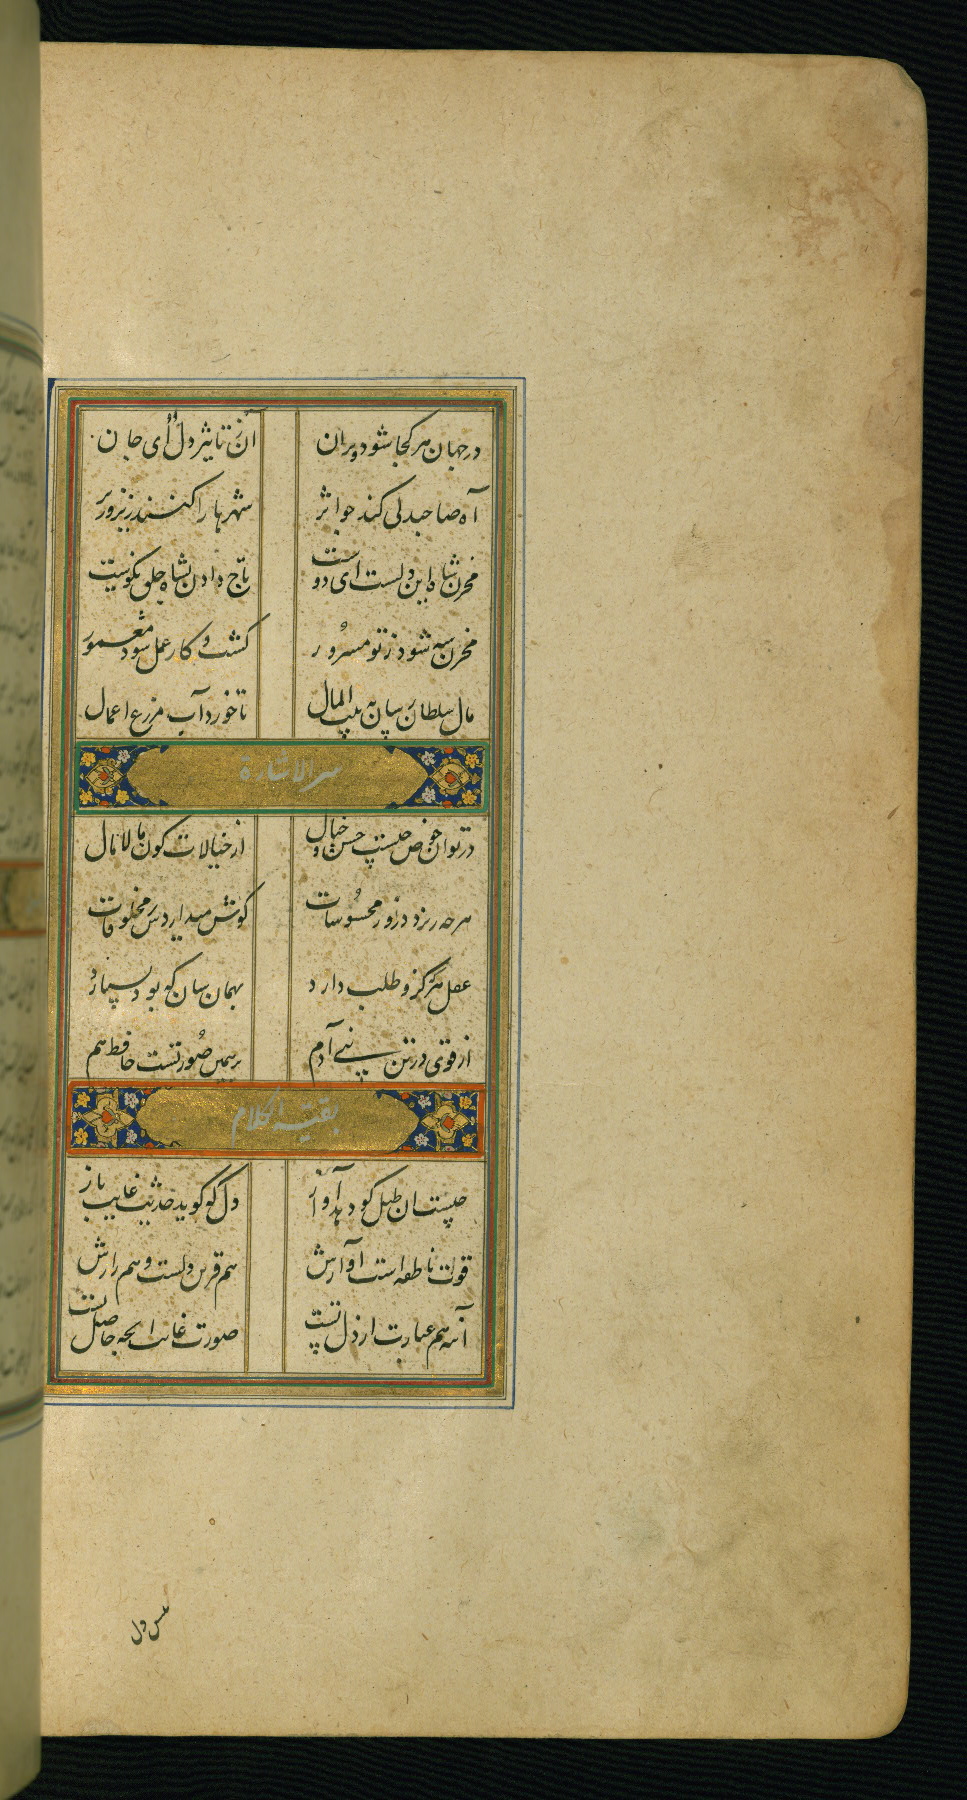 در جهان هر کجا شود ویران آن ز تاثیر دل بُوَد ای جان
آه صاحبدلی کند چو اثر شهرها را کنند زیر و زبر
مخزن شاه این دلست ای دوست تاج دادن بشاه خلق نکوست
مخزن شه شود ز تو مسرُور کشت و کار عمل شود معمور
مال سلطان رسان به بیت المال تا خورد آب مزرع اعمال
سر الاشارة
در توان خوض چیست حسن و خیال از خیالات کون مالامال
هرچه ریزد درو ز محسُوسات گوش میدارد سر مخلوقات
عقل هرگز و طلب دارد بهمان سان که بود بسپارد
از قوی در تن بنی آدم بر همین صُورتست حافظ هم
بقیة الکلام
چیست آن طبل کو دهد آواز دل کو گوید حدیث غایب باز
قوت ناطقه است آوازش هم قرین دلست و هم رازش
آنهم عبارت از دل تست صورت غائب آنچه حاصل تست
عکس دل